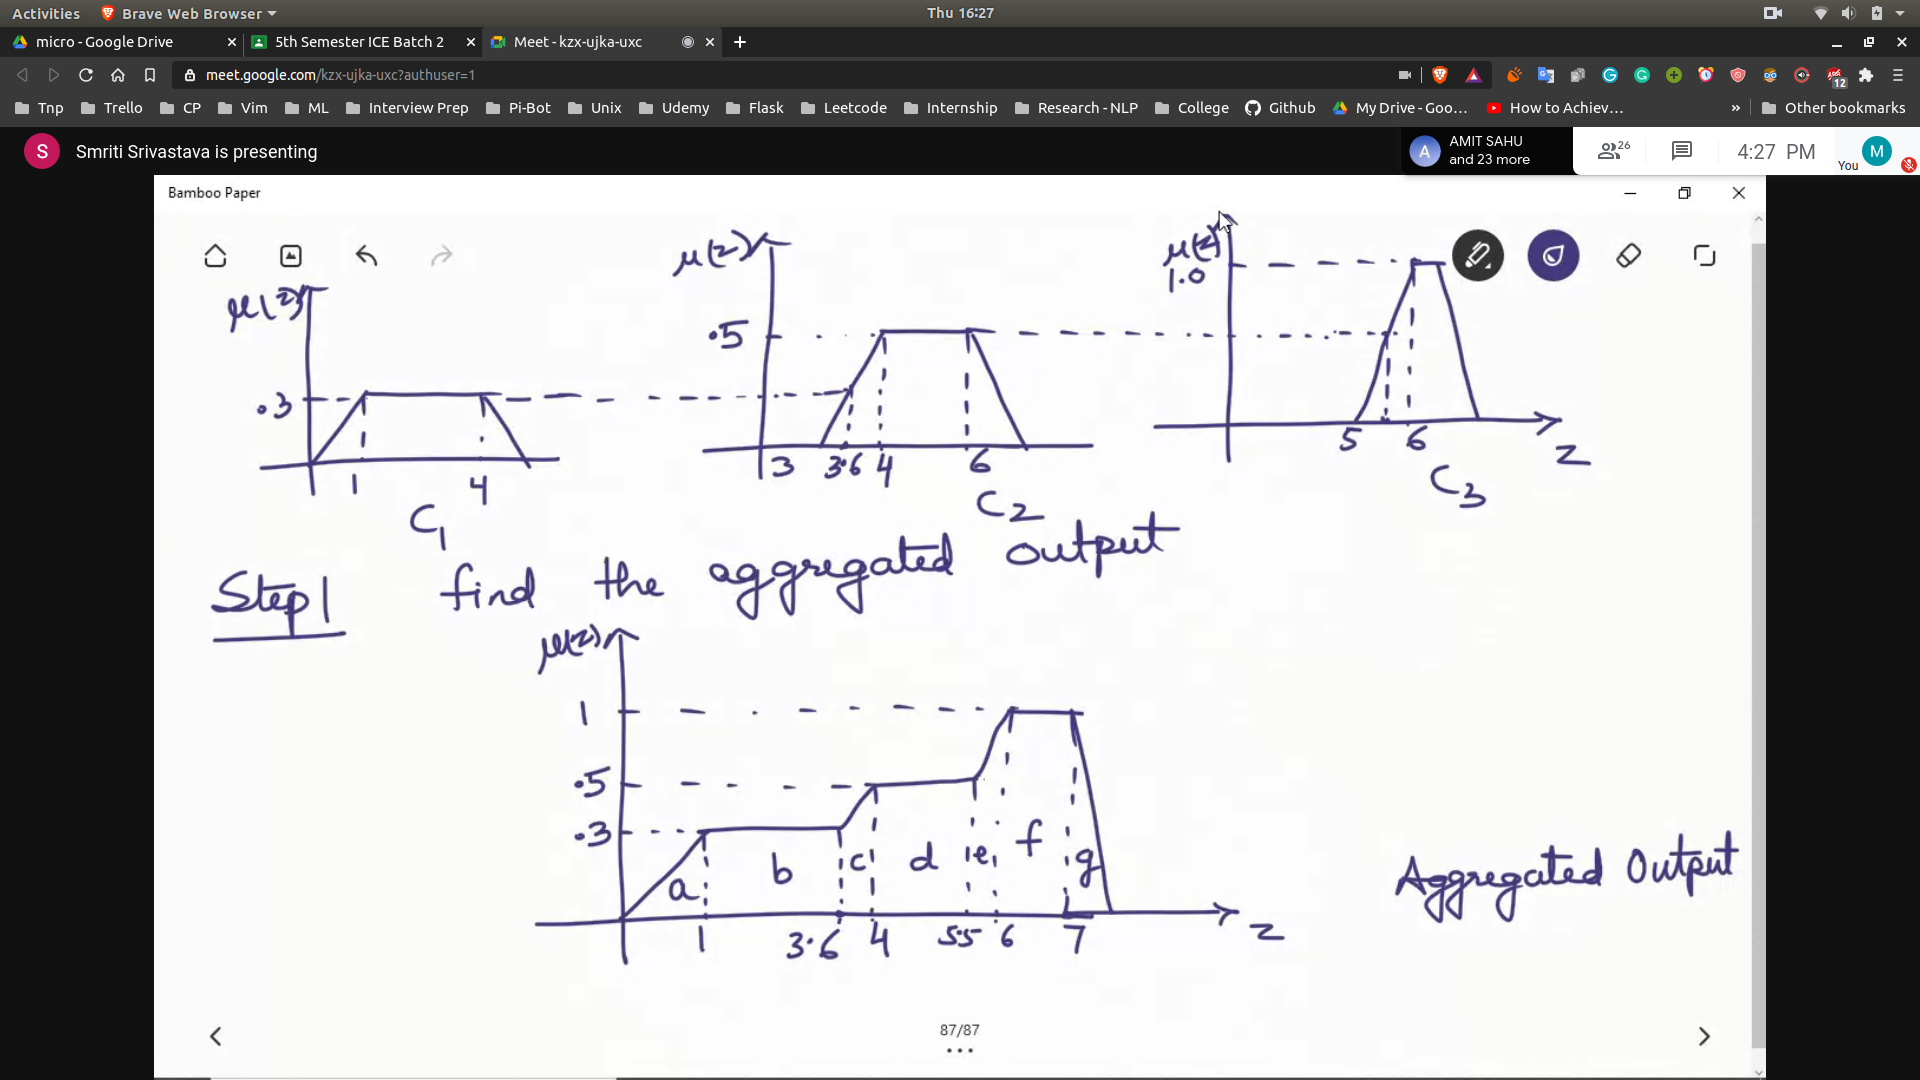 Activities Brave Web Browser Thu 16:27
micro - Google Drive 5th Semester ICE Batch 2 Meet - kzx-ujka-uxc
meet.google.com/kzx-ujka-uxc?authuser=1 12
Tnp Trello CP Vim ML Interview Prep Pi-Bot Unix Udemy Flask Leetcode Internship Research - NLP College Github My Drive - Goo... How to Achiev... » Other bookmarks
S Smriti Srivastava is presenting A AMIT SAHU and 23 more 26 4:27 PM You M
Bamboo Paper
μ(z) μ(z) μ(z)
1.0
.5
.3
1 4 3 3.6 4 6 5 6 z
C1 C2 C3
Step 1 find the aggregated output
μ(z)
1
.5
.3
a b c d e f g
1 3.6 4 5.5 6 7 z
Aggregated Output
87/87